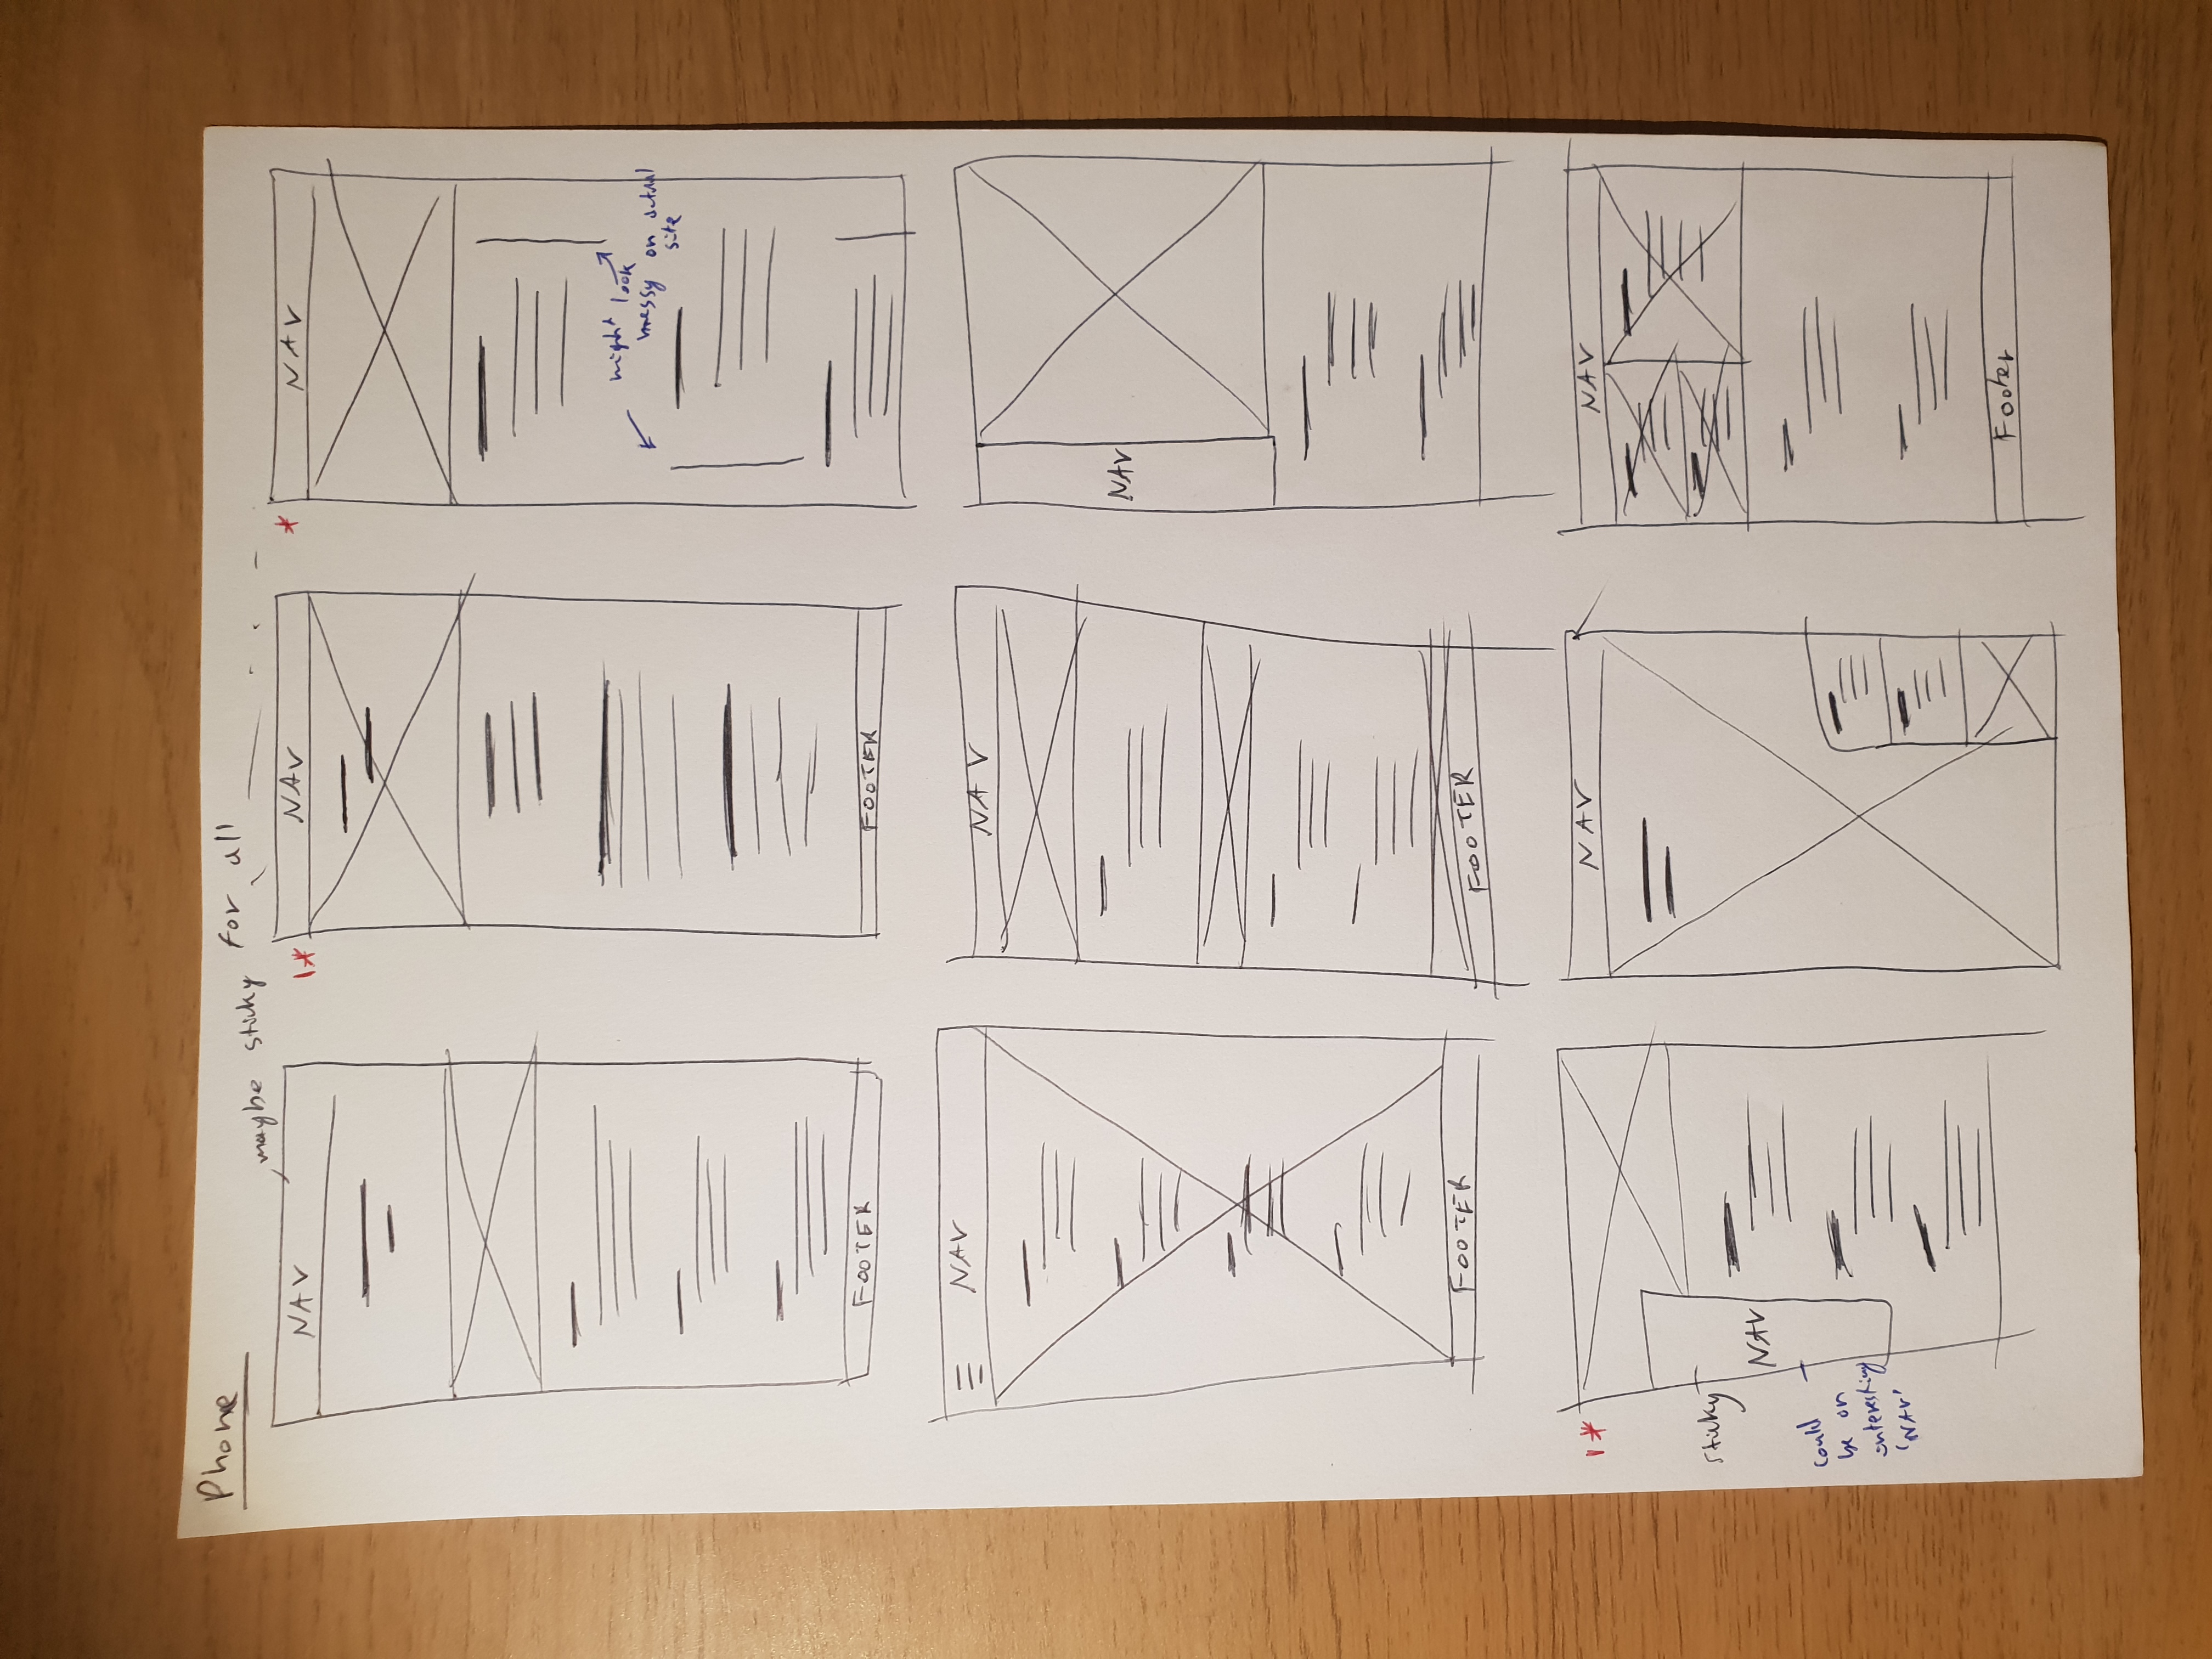 Phone
maybe sticky for all
NAV
FOOTER
1*
NAV
FOOTER
*
NAV
might look
messy on actual
site
NAV
FOOTER
NAV
FOOTER
NAV
1*
sticky
NAV
could
be an
interesting
'NAV'
NAV
NAV
Footer